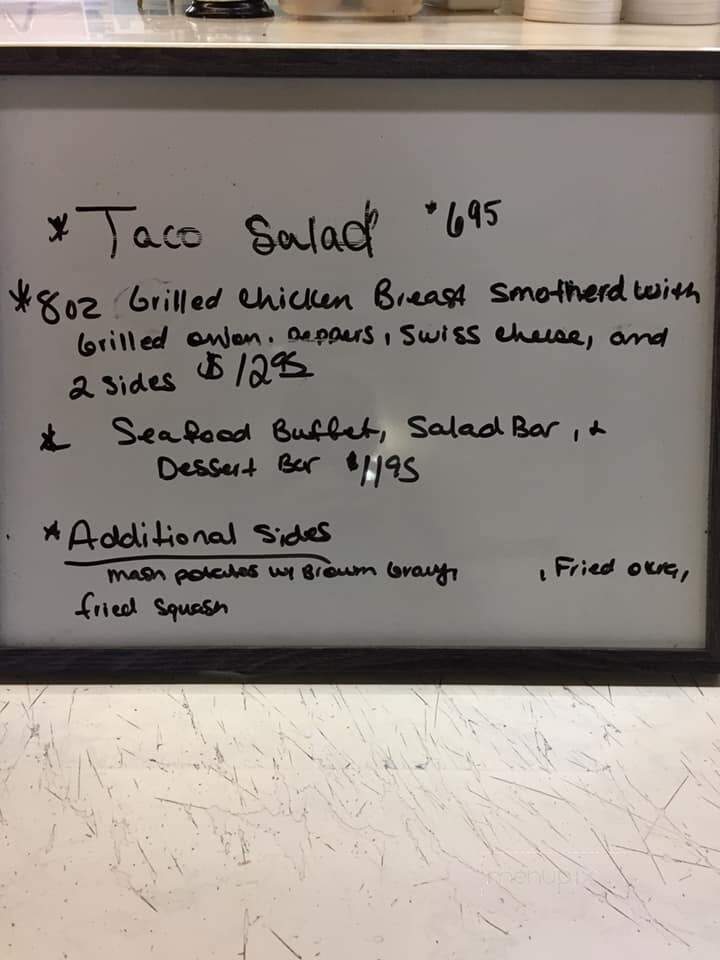 * Taco Salad $695
* 8oz Grilled Chicken Breast Smotherd with
Grilled onion, peppers, Swiss cheese, and
2 sides $1295
* Seafood Buffet, Salad Bar, +
Dessert Bar $1195
* Additional Sides
mash potatoes w/ Brown Gravy, , Fried okra,
fried squash
menupix